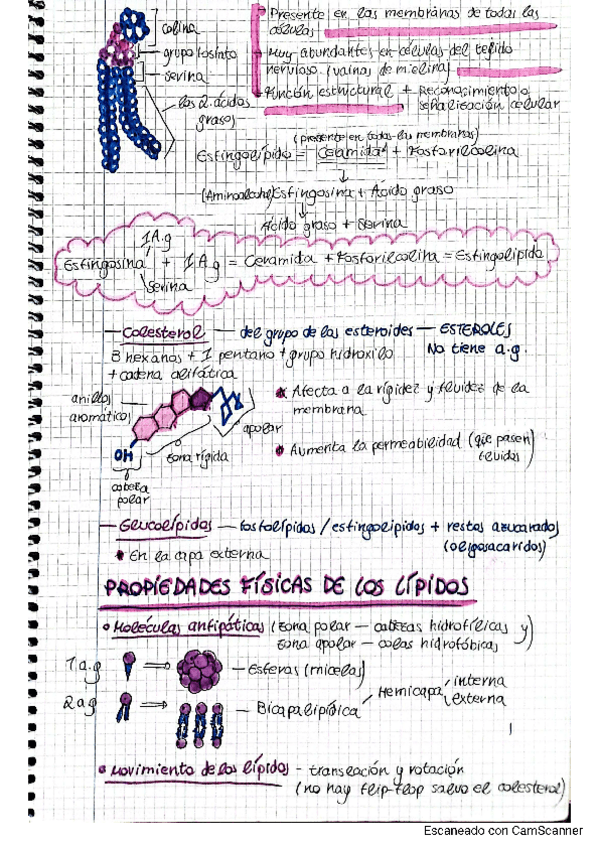 Presente en las membranas de todas las
células
colina
grupo fosfato
serina
Muy abundantes en células del tejido
nervioso (vainas de mielina)
los 2 ácidos
grasos
Función estructural + Reconocimiento o
señalización celular
(presente en todas las membranas)
Esfingolípido = Ceramida + Fosforilcolina
(Aminoalcohol) Esfingosina + Ácido graso
Ácido graso + Serina
1A.g
Esfingosina + 1A.g = Ceramida + Fosforilcolina = Esfingolípido
Serina
- Colesterol - del grupo de los esteroides - ESTEROLES
3 hexanos + 1 pentano + grupo hidroxilo
No tiene a.g.
+ cadena alifática
anillos
aromáticos
Afecta a la rigidez y fluidez de la
membrana
apolar
OH
zona rígida
Aumenta la permeabilidad (que pasen
fluidos)
cabeza
polar
- Glucolípidos - fosfolípidos / esfingolípidos + restos azucarados
(oligosacáridos)
En la capa externa
PROPIEDADES FÍSICAS DE LOS LÍPIDOS
Moléculas anfipáticas (zona polar - cabezas hidrofílicas y
zona apolar - colas hidrofóbicas)
1 a.g
Esferas (micelas)
2 a.g
Bicapa lipídica
Hemicapa
interna
externa
Movimiento de los lípidos - translación y rotación
(no hay flip-flop salvo el colesterol)
Escaneado con CamScanner